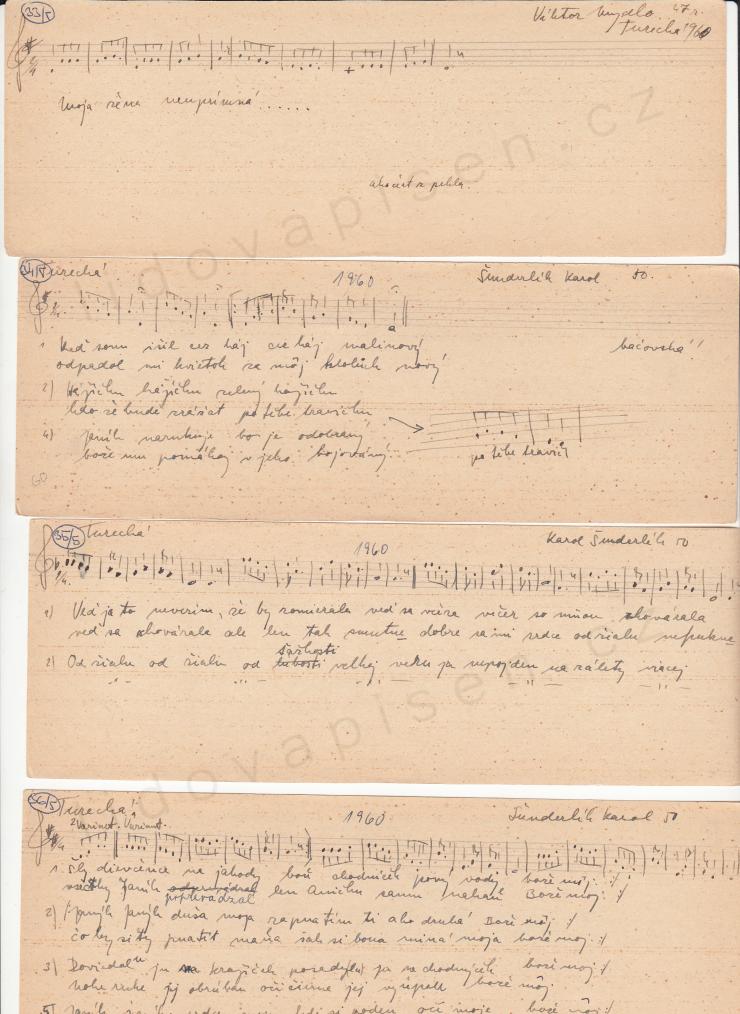 33/5
Viktor 47 r.
Turecká 1960
Moja žena neuprimná......
akoćat z pekla.
34/5 Turecká
1960
Šunderlík Karol 50.
1 Keď som išiel cez háj cez háj malinový
odpadol mi kvietok za môj klobúk nový
baćovská!!
2) Hájíčku hájíčku zelený hájíčku
kdo že bude zrášat po tebe travičku
4) Janík narukuje bo je odobraný
bože mu pomáhaj v jeho bojováný
po tebe travič
60
35/5 Turecká
1960
Karol Šunderlík 50
1) Veď ja to neverim, že by zomierala veď sa včera večer so mňou zhovárala
veď sa zhovárala ale len tak smutne dobre sa mi srdce od žialu nepukne
2) Od žialu od žialu od ťažkosti velkej veru ja nepojdem na zálety viacej
36/5 Turecká
2 Variant. Variant.
1960
Šunderlík Karol 50
1. Šly dievčence na jahody bož chodníček vodi bože môj :/
všetky Janík poprevádzal len Aničku samu nahal Bože môj :/
2) /: Janík Janík duša moja zaplatím ti ako druhá Bože môj :/
čo by si ty platit mala šak si bola milá moja bože moj :/
3) Doviedol ju na krajíček posadyl ju na chodníček bože moj :/
nohe ruke jej obrúbau očičième jej vyúpau bože môj
5) Janík oči moje bože môj :/
ludovapisen.cz
ludovapisen.cz